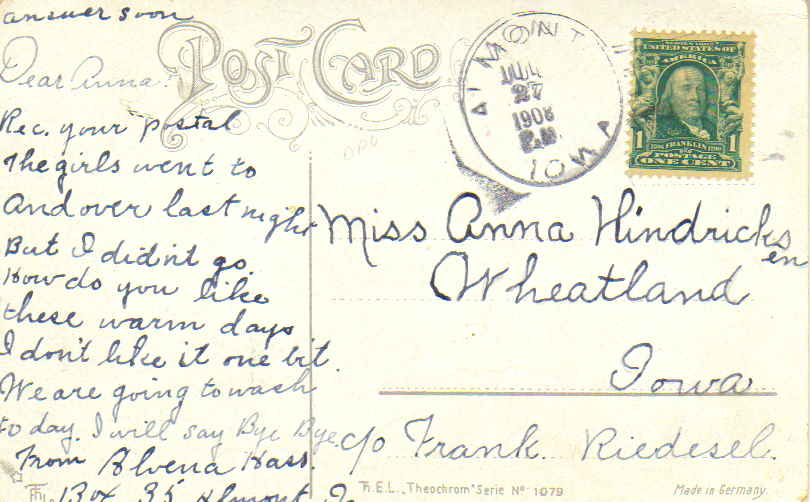 answer soon
POST CARD
Dear Anna:
Rec. your postal
The girls went to
Andover last night
But I didn't go.
How do you like
these warm days
I don't like it one bit.
We are going to wash
to day. I will say Bye Bye
From Alvena Hass.
Box 35 Almont, Ia
ALMONT
JUL
27
1908
P.M.
IOWA
UNITED STATES OF
AMERICA
1 1706 FRANKLIN 1790 1
POSTAGE
ONE CENT
Miss Anna Hindricks
en
Wheatland
Iowa
c/o Frank Riedesel.
Th.E.L. „Theochrom" Serie No 1079
Made in Germany.